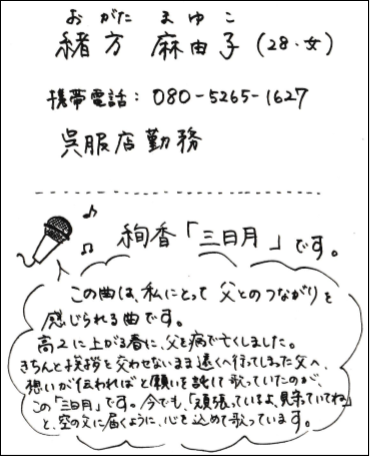 おがた まゆこ
緒方 麻由子 (28・女)
携帯電話：080-5265-1627
呉服店勤務
絢香「三日月」です。
この曲は、私にとって 父とのつながりを
感じられる曲です。
高2に上がる春に、父を病で亡くしました。
きちんと挨拶を交わせないまま遠くへ行ってしまった父へ、
想いが伝わればと願いを託して歌っていたのが、
この「三日月」です。今でも、「頑張っているよ、見ていてね」
と、空の父に届くように、心を込めて歌っています。